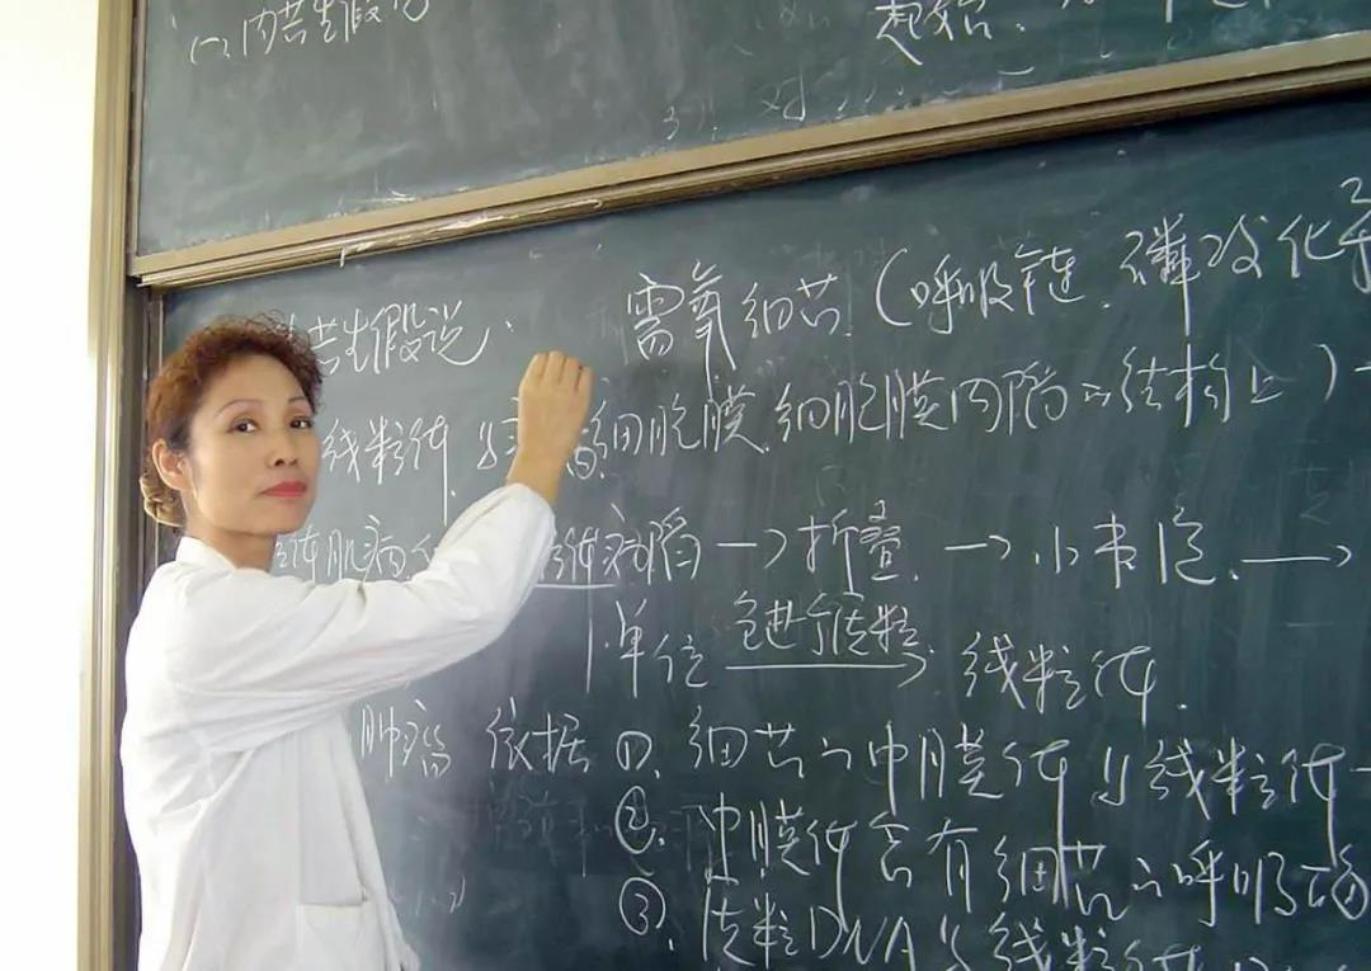 (一)、内共生假说
起始:
3). 对
共生假说.
需氧细菌.(呼吸链.磷酸化系
线粒体.与
细胞膜.细胞膜内陷的结构上)
体肌病
内陷→折叠.→小囊泡.→
单位 包进了质粒 线粒体.
肿瘤 依据 ①.细菌的中膜体与线粒体
②.中膜体含有细菌的呼吸
③.质粒DNA与线粒体